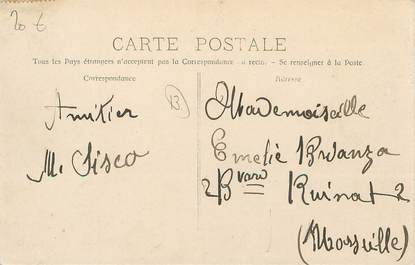 20 €
CARTE POSTALE
Tous les Pays étrangers n'acceptent pas la Correspondance au recto. - Se renseigner à la Poste.
Correspondance
Adresse
13
Amitier
M. Sisco
Mademoiselle
Emelie
2 B vard Ruinat 2
(Marseille)